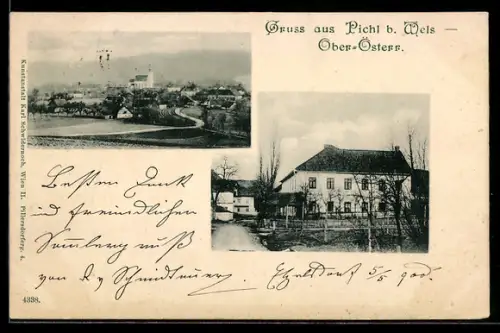 Gruss aus Pichl b. Wels —
Ober-Österr.
Kunstanstalt Karl Schwidernoch, Wien II. Pillersdorferg. 4.
Besten Dank
und freundlichen
von
5/5 900.
4338.